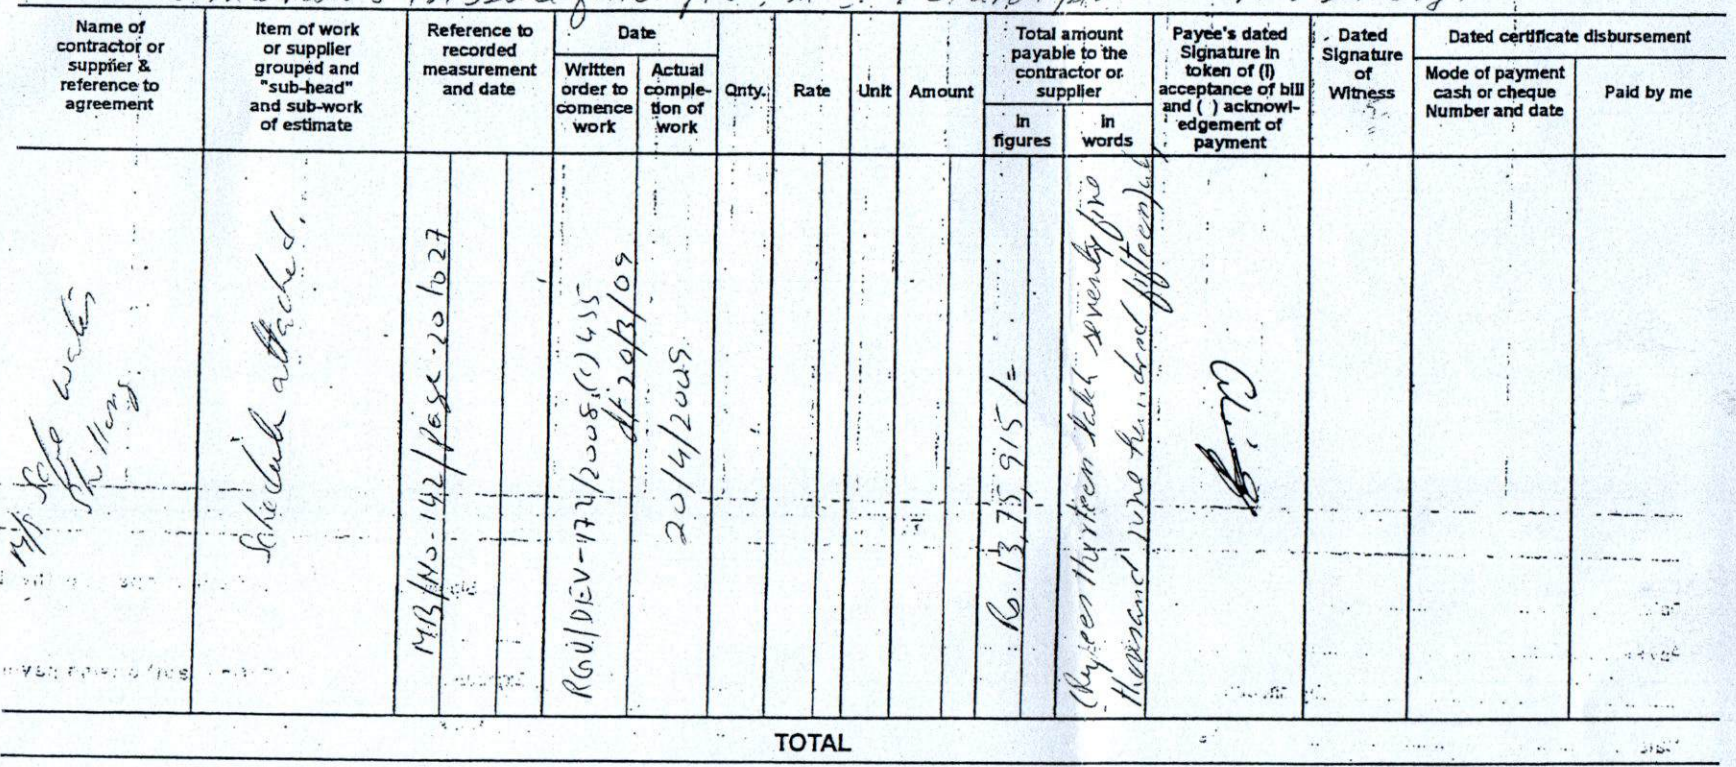 Name of
contractor or
supplier &
reference to
agreement
Item of work
or supplier
grouped and
"sub-head"
and sub-work
of estimate
Reference to
recorded
measurement
and date
Date
Written
order to
comence
work
Actual
comple-
tion of
work
Qnty.
Rate
Unit
Amount
Total amount
payable to the
contractor or
supplier
In
figures
In
words
Payee's dated
Signature in
token of (I)
acceptance of bill
and ( ) acknowl-
edgement of
payment
Dated
Signature
of
Witness
Dated certificate disbursement
Mode of payment
cash or cheque
Number and date
Paid by me
M/s Safe water
Shillong
Schedule attached.
MB/No-142/Page-20 to 27
RGU/DEV-472/2008(1)455
dt 20/3/09
20/4/2009
Rs. 13,75,915/=
(Rupees thirteen lakh seventy five
thousand nine hundred fifteen) only
TOTAL